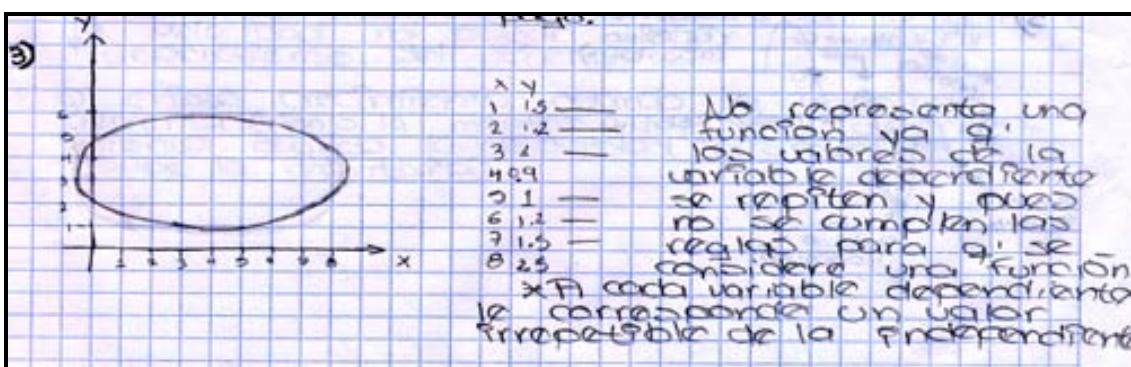 3)
y
6
5
4
3
2
1
1 2 3 4 5 6 7 8 x
x y
1 1.5
2 1.2
3 1
4 0.9
5 1
6 1.2
7 1.5
8 2.5
No representa una
función ya q'
los valores de la
variable dependiente
se repiten y pues
no se cumplen las
reglas para q' se
considere una función
*A cada variable dependiente
le corresponde un valor
irrepetible de la independiente